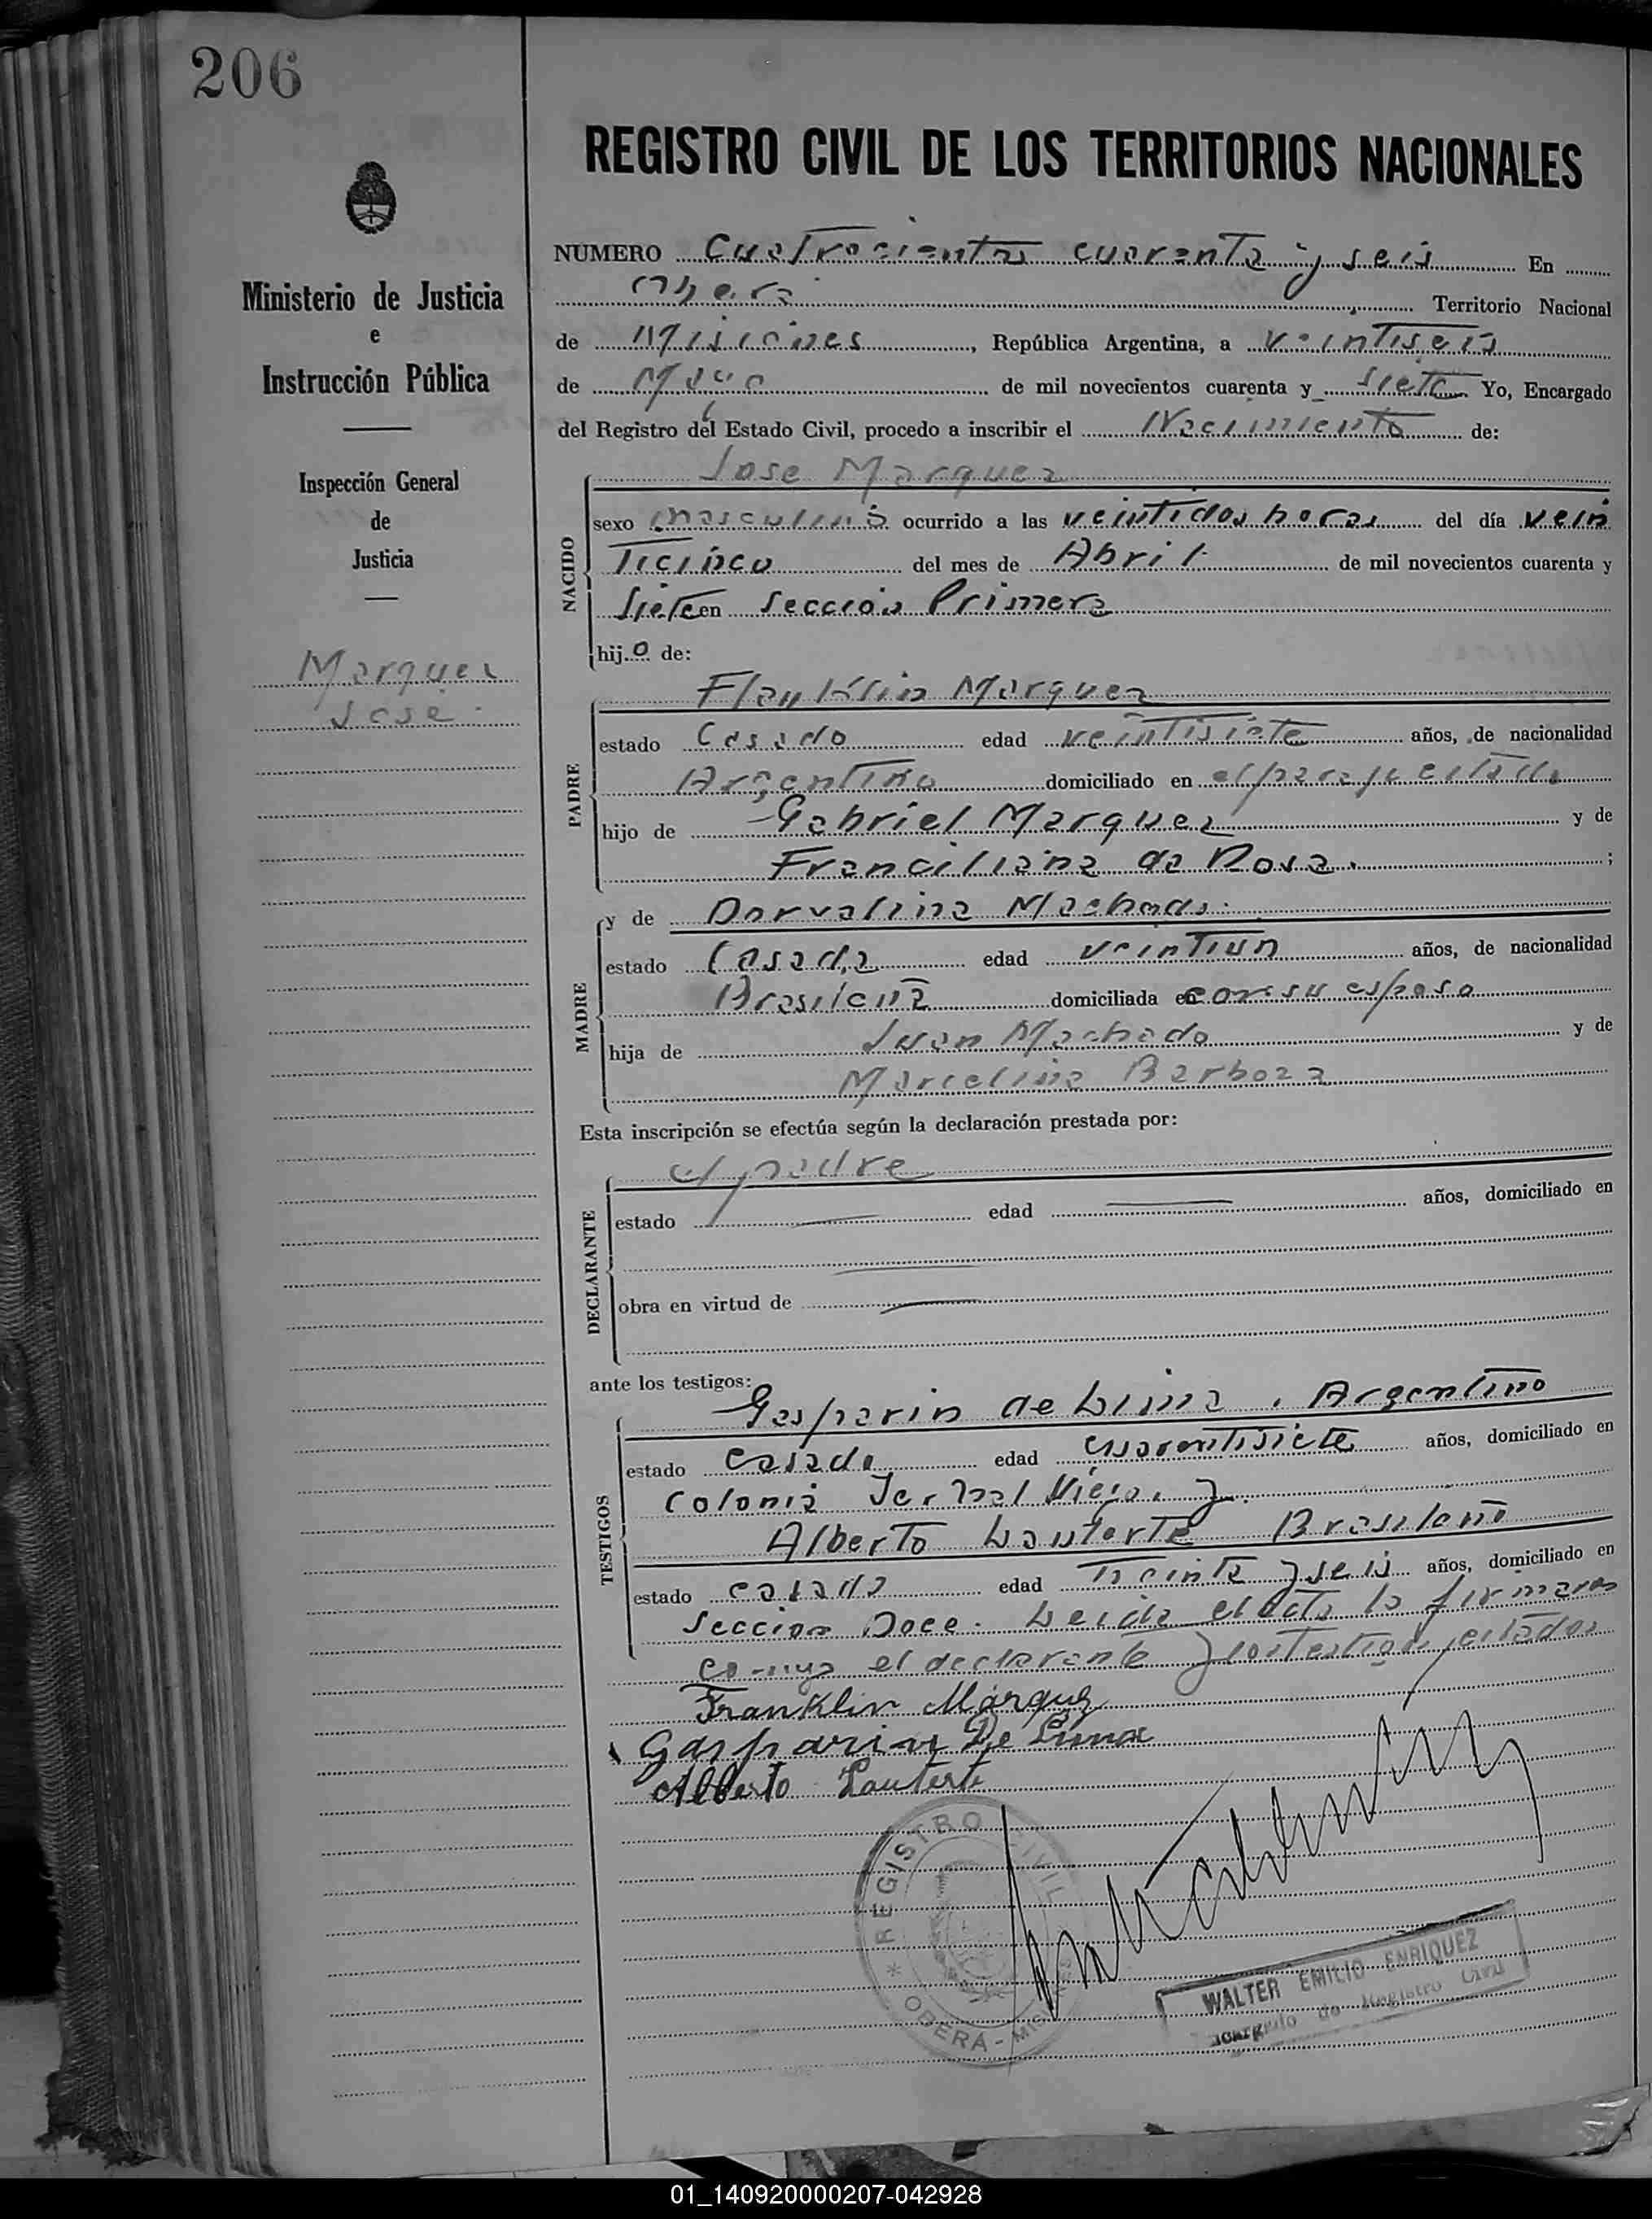 206
REGISTRO CIVIL DE LOS TERRITORIOS NACIONALES
Ministerio de Justicia
e
Instrucción Pública
Inspección General
de
Justicia
Marquez
Jose
NUMERO Cuatrocientos cuarenta y seis En
Obera Territorio Nacional
de Misiones, República Argentina, a veintiseis
de Mayo de mil novecientos cuarenta y siete Yo, Encargado
del Registro del Estado Civil, procedo a inscribir el Nacimiento de:
NACIDO
Jose Marquez
sexo masculino ocurrido a las veintidos horas del día vein
ticinco del mes de Abril de mil novecientos cuarenta y
siete en Sección Primera
hijo de:
PADRE
Marquez
estado Casado edad veintisiete años, de nacionalidad
Argentino domiciliado en el paraje citado
hijo de Gabriel Marquez y de
Franciliana da Rosa.;
MADRE
y de Dorvalina Machado.
estado Casada edad veintiun años, de nacionalidad
Brasileña domiciliada en con su esposo
hija de Juan Machado y de
Marcelina Barboza
Esta inscripción se efectúa según la declaración prestada por:
DECLARANTE
el padre
estado edad años, domiciliado en
obra en virtud de
ante los testigos:
TESTIGOS
Gasparin de Lima, Argentino
estado casado edad cuarentisiete años, domiciliado en
Colonia Yerbal Viejo. y
Alberto Lauterte Brasileño
estado casado edad treinta y seis años, domiciliado en
Seccion Doce. Leida el acta la firmaron
conmigo el declarante y los testigos citados
Franklin Márquez
Gasparin De Lima
Alberto Lauterte
REGISTRO CIVIL
* OBERÁ - MISIONES
WALTER EMILIO ENRIQUEZ
Encargado de Registro Civil
01_140920000207-042928